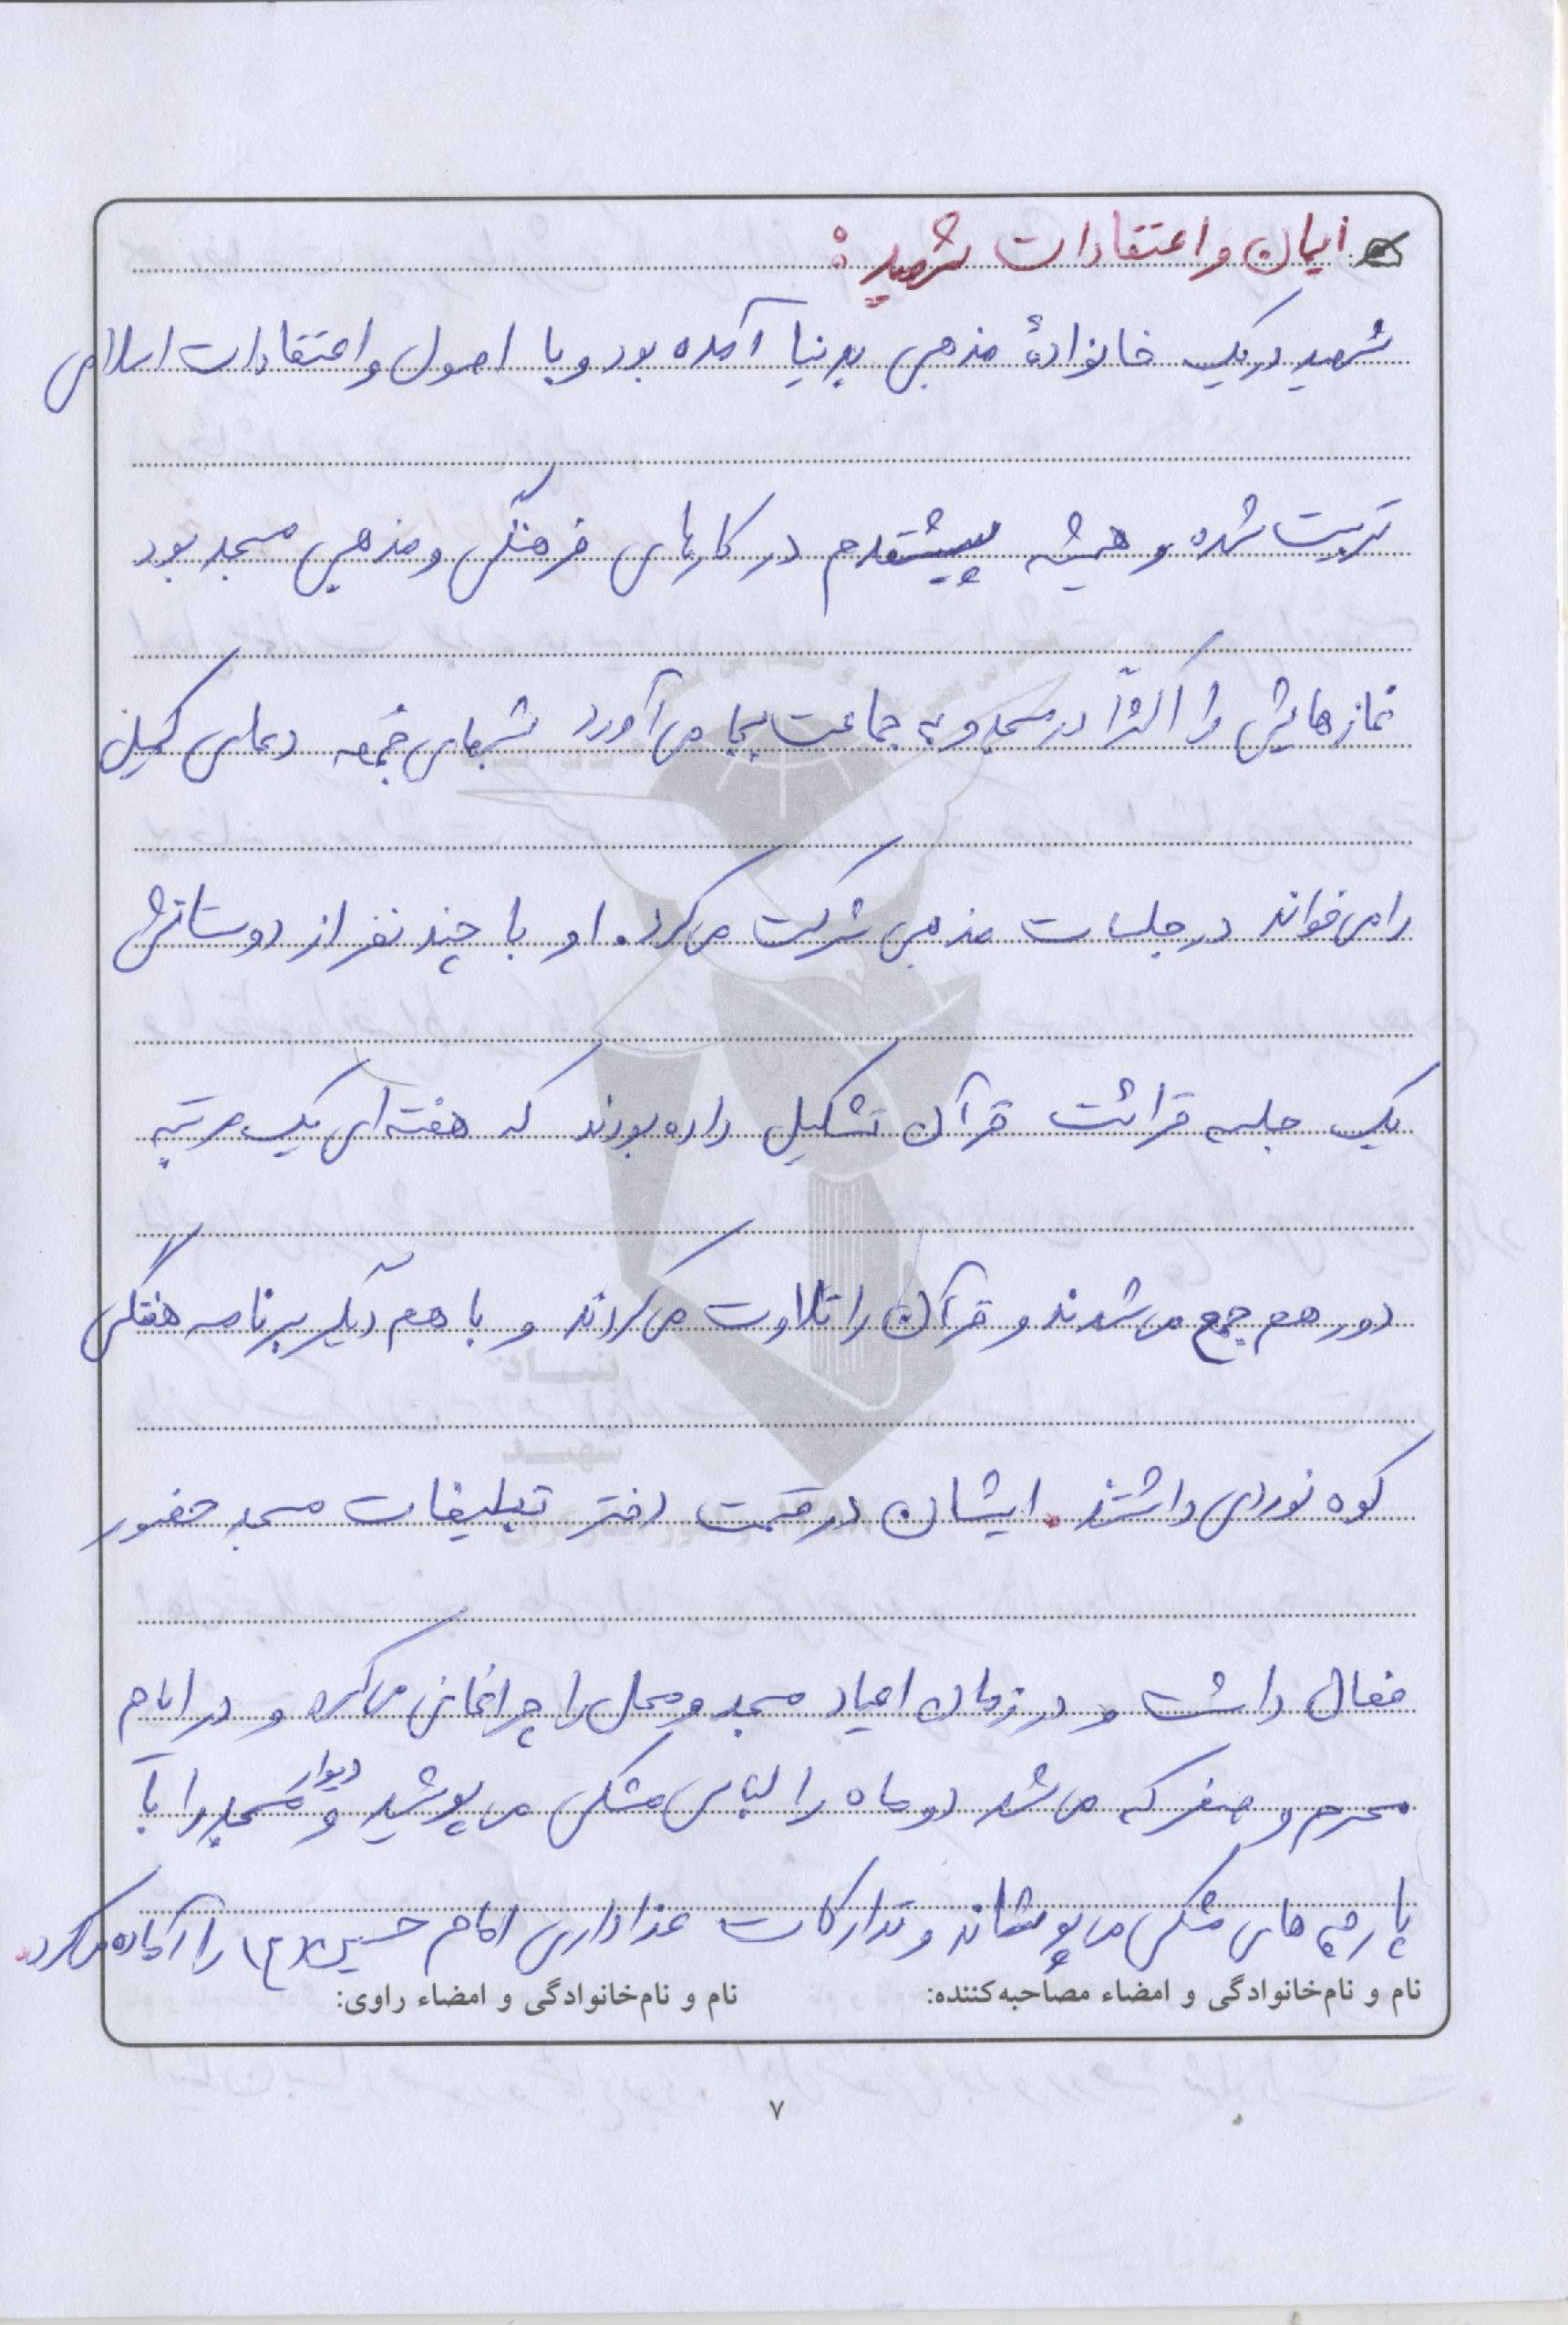 ایمان و اعتقادات شهید:
شهید در یک خانوادهٔ مذهبی بدنیا آمده بود و با اصول و اعتقادات اسلامی
تربیت شده و همیشه پیشقدم در کارهای فرهنگی و مذهبی مسجد بود
نمازهایش را اکثراً در مسجد و به جماعت بجا می‌آورد شبهای جمعه دعای کمیل
را می‌خواند در جلسات مذهبی شرکت می‌کرد. او با چند نفر از دوستانش
یک جلسه قرائت قرآن تشکیل داده بودند که هفته‌ای یک مرتبه
دور هم جمع می‌شدند و قرآن را تلاوت می‌کردند و با همدیگر برنامه هفتگی
کوه نوردی داشتند. ایشان در قسمت دفتر تبلیغات مسجد حضور
فعال داشت و در زمان اعیاد مسجد و محل را چراغانی می‌کرد و در ایام
محرم و صفر که می‌شد دو ماه را لباس مشکی می‌پوشید و دیوار مسجد را با
پارچه‌های مشکی می‌پوشاند و تدارکات عذاداری امام حسین (ع) را آماده می‌کرد.
نام و نام‌خانوادگی و امضاء مصاحبه‌کننده: نام و نام‌خانوادگی و امضاء راوی:
۷